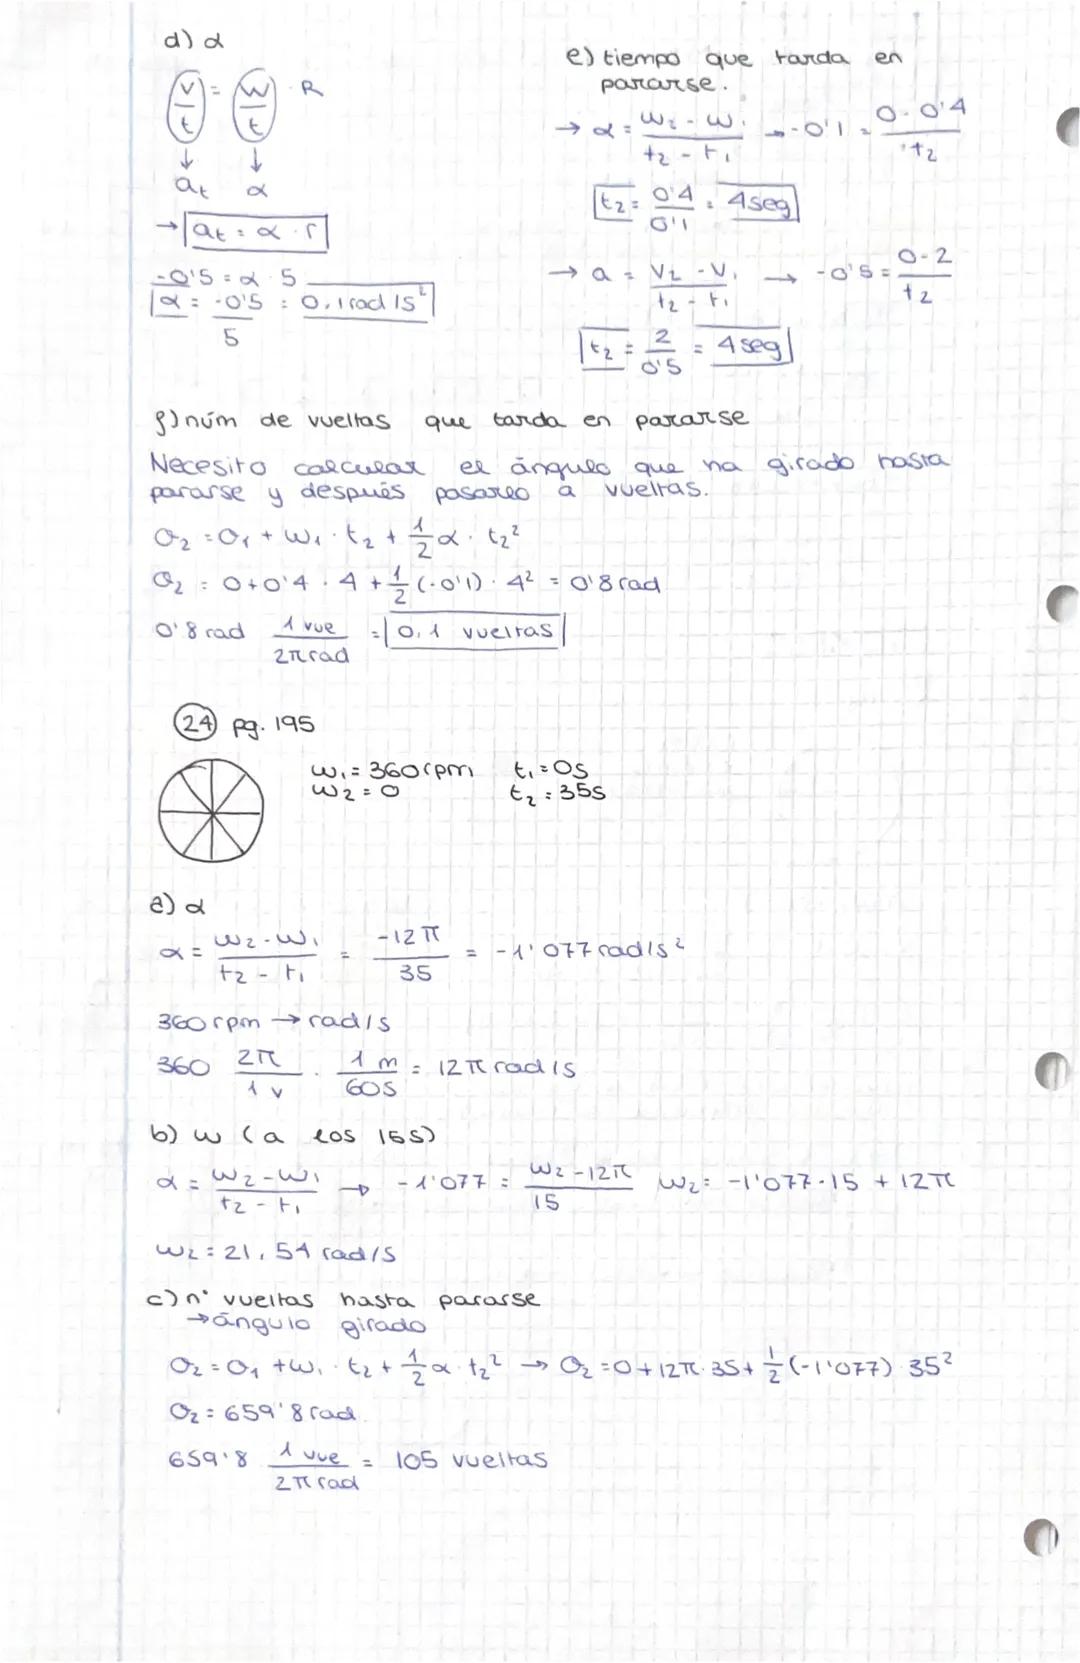 d) α
v/t = w/t · R
↓ ↓
at α
→ at = α · r
-0'5 = α · 5
α = -0'5/5 = 0,1 rad/s²
e) tiempo que tarda en
pararse.
→ α = (w₂ - w₁)/(t₂ - t₁) → -0'1 = (0 - 0'4)/t₂
t₂ = 0'4/0'1 = 4 seg
→ a = (v₂ - v₁)/(t₂ - t₁) → -0'5 = (0 - 2)/t₂
t₂ = 2/0'5 = 4 seg
f) núm de vueltas que tarda en pararse
Necesito calcular el ángulo que ha girado hasta
pararse y después pasarlo a vueltas.
O₂ = O₁ + w₁ · t₂ + 1/2 α · t₂²
O₂ = 0 + 0'4 · 4 + 1/2 (-0'1) · 4² = 0'8 rad
0'8 rad 1 vue/2π rad = 0,1 vueltas
24 pg. 195
w₁ = 360 rpm t₁ = 0s
w₂ = 0 t₂ = 35s
a) α
α = (w₂ - w₁)/(t₂ - t₁) = -12π/35 = -1'077 rad/s²
360 rpm → rad/s
360 2π/1 v · 1 m/60s = 12π rad/s
b) w (a los 15s)
α = (w₂ - w₁)/(t₂ - t₁) → -1'077 = (w₂ - 12π)/15 w₂ = -1'077 · 15 + 12π
w₂ = 21,54 rad/s
c) nº vueltas hasta pararse
→ ángulo girado
O₂ = O₁ + w₁ · t₂ + 1/2 α · t₂² → O₂ = 0 + 12π · 35 + 1/2 (-1'077) · 35²
O₂ = 659'8 rad.
659'8 1 vue/2π rad = 105 vueltas